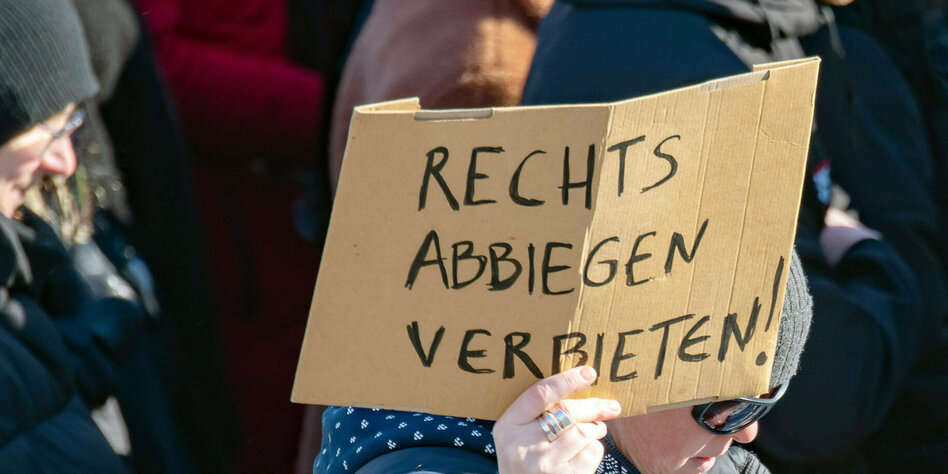 RECHTS
ABBIEGEN
VERBIETEN!